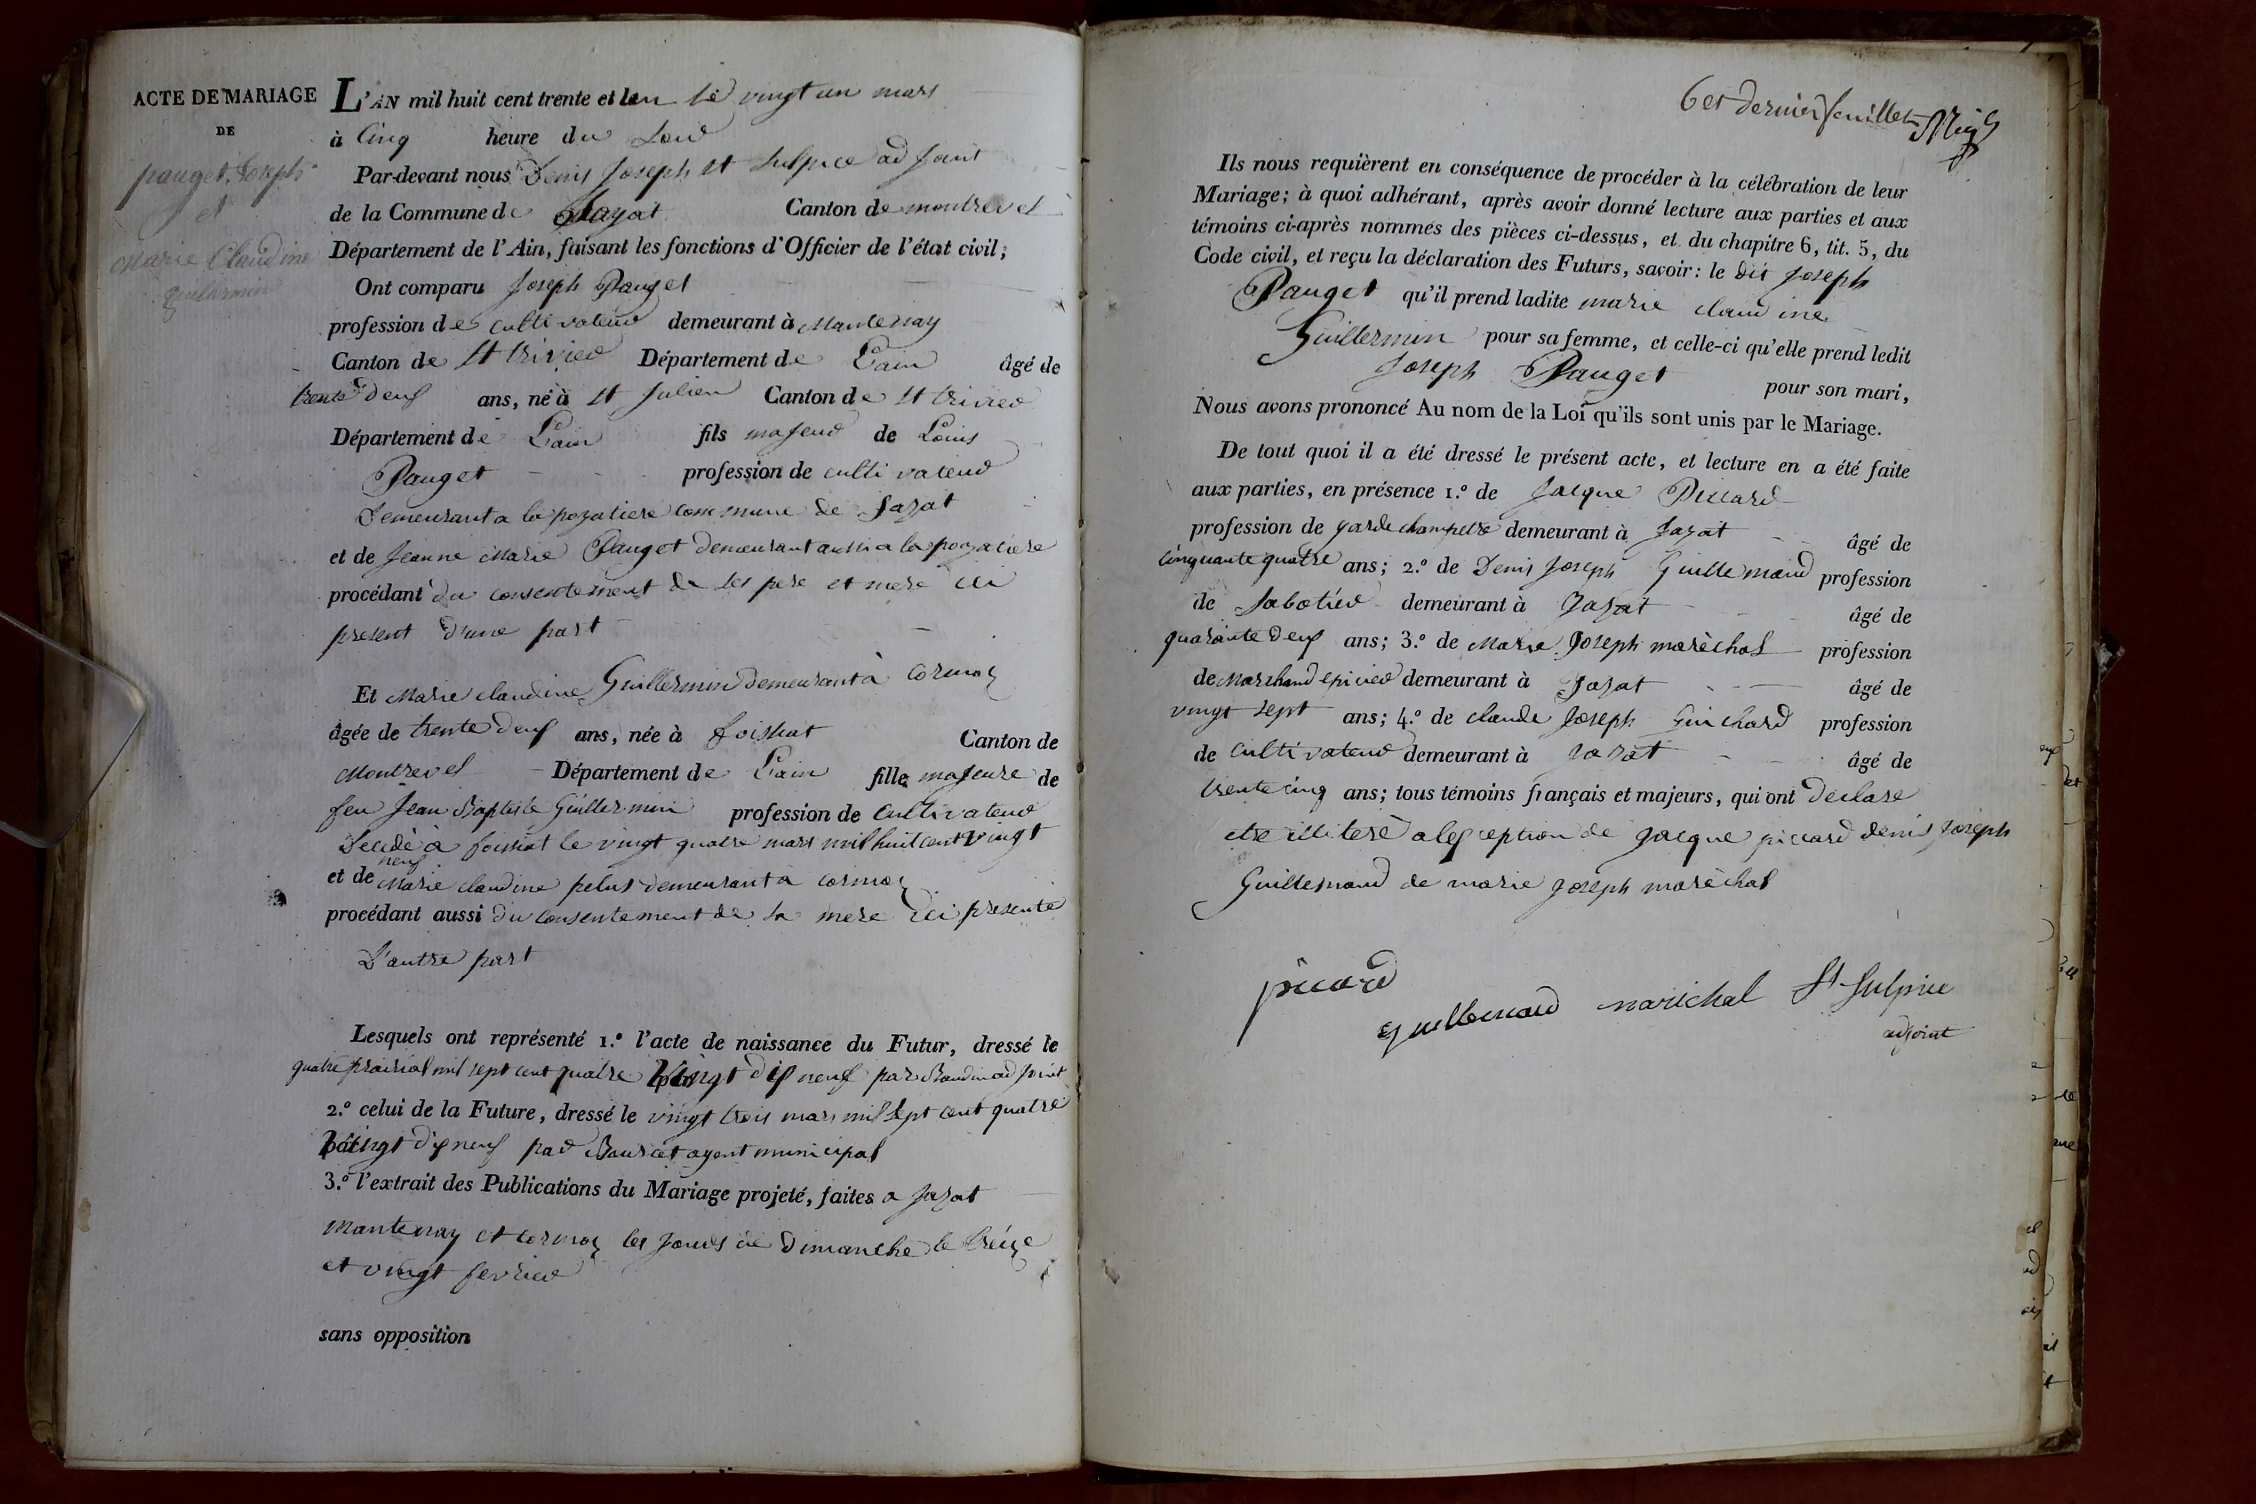 ACTE DE MARIAGE
DE
pauget Joseph
et
Marie Claudine
guilermin
L'AN mil huit cent trente et un le vingt un mars
à Cinq heure du soir
Par-devant nous Denis Joseph St Sulpice adjoint
de la Commune de Jayat Canton de montrevel
Département de l'Ain, faisant les fonctions d'Officier de l'état civil;
Ont comparu Joseph Pauget
profession de cultivateur demeurant à Mantenay
Canton de St trivier Département de L'ain âgé de
trente deux ans, né à St Julien Canton de St trivier
Département de L'ain fils majeur de Louis
Pauget profession de cultivateur
Demeurant a la pozatiere commune de Jazat
et de Jeanne Marie Pauget demeurant aussi a la pozatiere
procédant du consentement de ses pere et mere ici
present d'une part
Et Marie claudine Guillermin demeurant à cormoz
âgée de trente deux ans, née à foissiat Canton de
Montrevel Département de L'ain fille majeure de
feu Jean Baptiste Guillermin profession de Cultivateur
Décédé à foissiat le vingt quatre mars mil huit cent vingt
neuf
et de Marie claudine pelus demeurant à cormoz
procédant aussi du consentement de sa mere ici presente
D'autre part
Lesquels ont représenté 1.º l'acte de naissance du Futur, dressé le
quatre prairial mil sept cent quatre vingt dix neuf par Baudin adjoint
2.º celui de la Future, dressé le vingt trois mars mil sept cent quatre
vingt dix neuf par Bourcet agent municipal
3.º l'extrait des Publications du Mariage projeté, faites a Jazat
Mantenay et cormoz les jours de Dimanche le treize
et vingt fevrier
sans opposition
6 et dernier feuillet
Ils nous requièrent en conséquence de procéder à la célébration de leur
Mariage; à quoi adhérant, après avoir donné lecture aux parties et aux
témoins ci-après nommés des pièces ci-dessus, et du chapitre 6, tit. 5, du
Code civil, et reçu la déclaration des Futurs, savoir: le dit Joseph
Pauget qu'il prend ladite marie claudine
Guillermin pour sa femme, et celle-ci qu'elle prend ledit
Joseph Pauget pour son mari,
Nous avons prononcé Au nom de la Loi qu'ils sont unis par le Mariage.
De tout quoi il a été dressé le présent acte, et lecture en a été faite
aux parties, en présence 1.º de Jacque Piccard
profession de garde champetre demeurant à Jazat âgé de
cinquante quatre ans; 2.º de Denis Joseph Guillemaud profession
de Sabotier demeurant à Jazat âgé de
quarante deux ans; 3.º de Marie Joseph marèchal profession
de Marchand epicier demeurant à Jazat âgé de
vingt sept ans; 4.º de claude Joseph Guichard profession
de cultivateur demeurant à Jazat âgé de
trente cinq ans; tous témoins français et majeurs, qui ont déclaré
etre illiteré a lexception de Jacque piccard denis Joseph
Guillemaud de marie Joseph marèchal
picard
Guillemaud marichal St Sulpice
adjoint